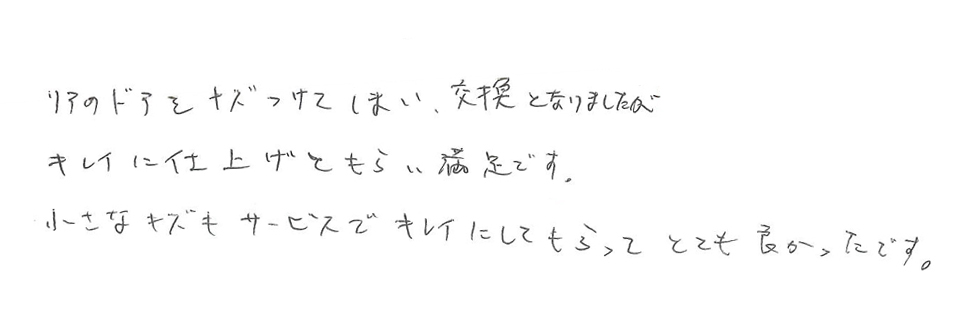 リアのドアをキズつけてしまい、交換となりましたが
キレイに仕上げてもらい満足です。
小さなキズもサービスでキレイにしてもらってとても良かったです。